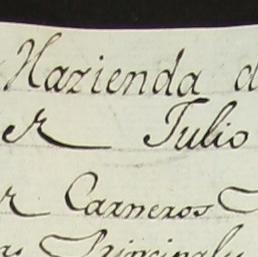 Hazienda d
er Julio
r Carneros
Principaly